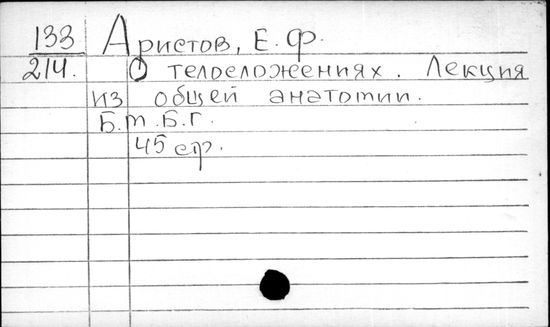 133 Аристов, Е. Ф.
214. О телосложениях. Лекция
из общей анатомии.
Б.m.Б.Г.
45 стр.